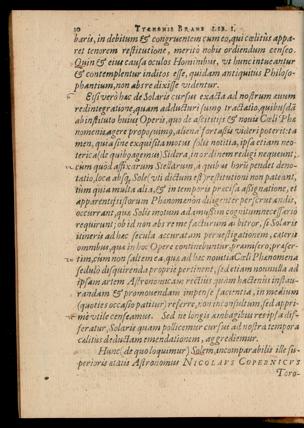 10 TYCHONIS BRAHE LIB. I.
baris, in debitum & congruentem cum eo, qui cœlitus appa-
ret tenorem restitutione, merito nobis ordiendum censeo.
Quin & eius causa oculos Hominibus, vt hunc intueantur
& contemplentur inditos esse, quidam antiquitus Philoso-
phantium, non abs re dixisse videntur.
Etsi verò hæc de Solaris cursus exacta ad nostrum æuum
redintegratione, quam adducturi sumus tractatio, quibusdã
ab instituto huius Operis, quo de ascititijs & nouis Cœli Phæ
nomenis agere proposuimo, aliena fortassis videri poterit: ta
men, quia sine exquisita motus solis notitia, ipsa etiam neo-
terica (de quibo agimus) Sidera, in ordinem redigi nequeunt;
cùm quòd affixarum Stellarum, à quib⁹ horũ pendet deno-
tatio, loca absq; Sole (vti dictum est) restitutioni non pateant,
tùm quia multa alia, & in temporis præcisa assignatione, et
apparentijs istorum Phænomenωn diligenter perscrutandis,
occurrant, quæ Solis motum ad amussim cognitum necessariò
requirunt; ob id non abs re me facturum arbitror, si Solaris
itineris ad hæc secula accuratam peruestigationem, cæteris
omnibus, quæ in hoc Opere continebuntur, præmisero, præser-
tim, cùm non saltem ea, quæ ad hæc nouitia Cœli Phænomena
sedulò disquirenda propriè pertinent, sed etiam nonnulla ad
ipsam artem Astronomicam rectius quàm hactenùs instau-
randam & promouendam impensè facientia, in medium
(quoties occasio patitur) referre, non inconsultum, sed appri-
mè vtile censeamus. Sed ne longis ambagibus res ipsa dif-
feratur, Solaris quam pollicemur cursus ad nostra tempora
cœlitùs deductam emendationem, aggrediemur.
Hunc (de quo loquimur) Solem, incomparabilis ille su-
perioris ætatis Astronomus NICOLAVS COPERNICVS
Toro-